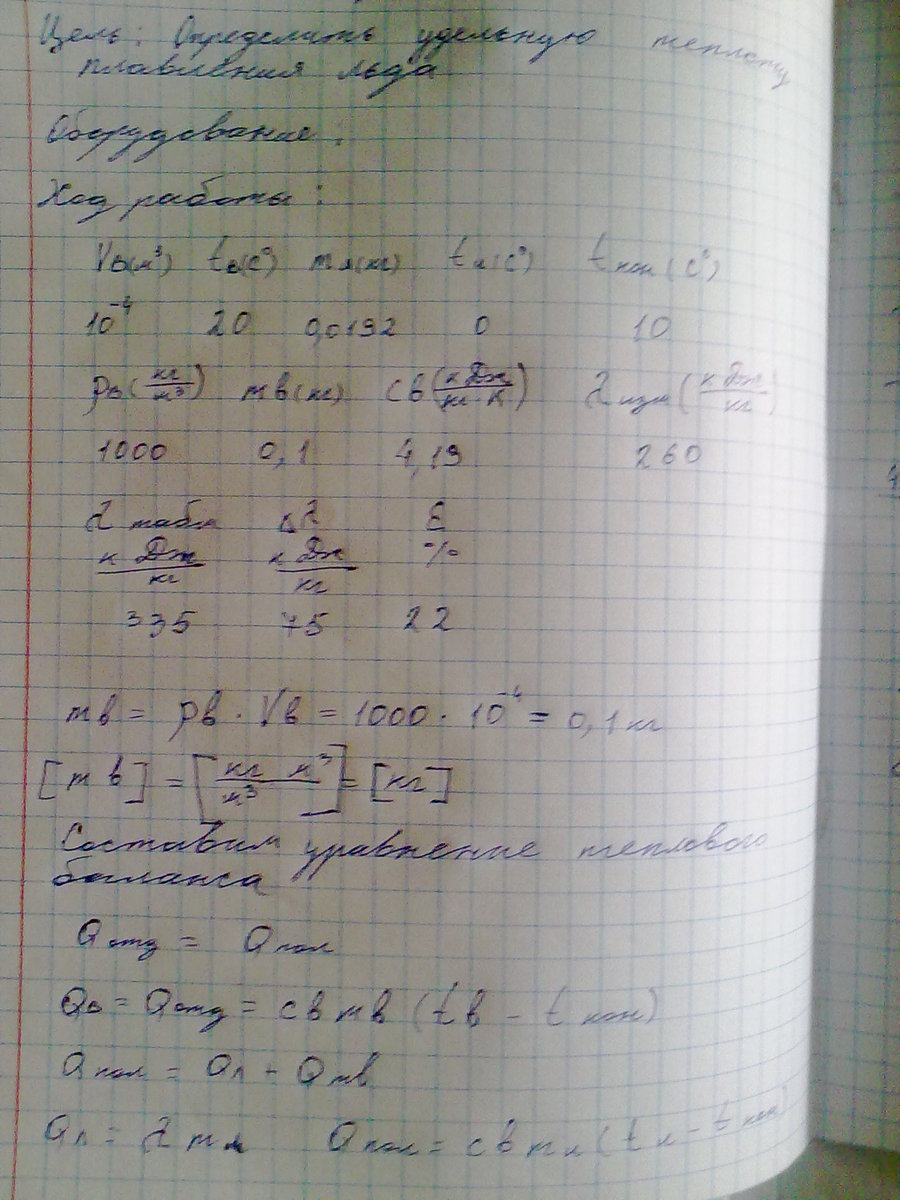 Цель: Определить удельную теплоту
плавления льда
Оборудование:
Ход работы:
Vв(м³) tв(С°) mл(кг) tл(С°) tкон(С°)
10⁻⁴ 20 0,0192 0 10
ρв(кг/м³) mв(кг) Cв(кДж/кг·К) λизм(кДж/кг)
1000 0,1 4,19 260
λ табл Δλ Ɛ
кДж/кг кДж/кг %
335 75 22
mв = ρв · Vв = 1000 · 10⁻⁴ = 0,1 кг
[mв] = [кг м³/м³] = [кг]
Составим уравнение теплового
баланса
Qотд = Qпол
Qв = Qотд = cв mв (tв - tкон)
Qпол = Qл - Qтв
Qл = λ mл Qпол = cв mл (tл - tкон)